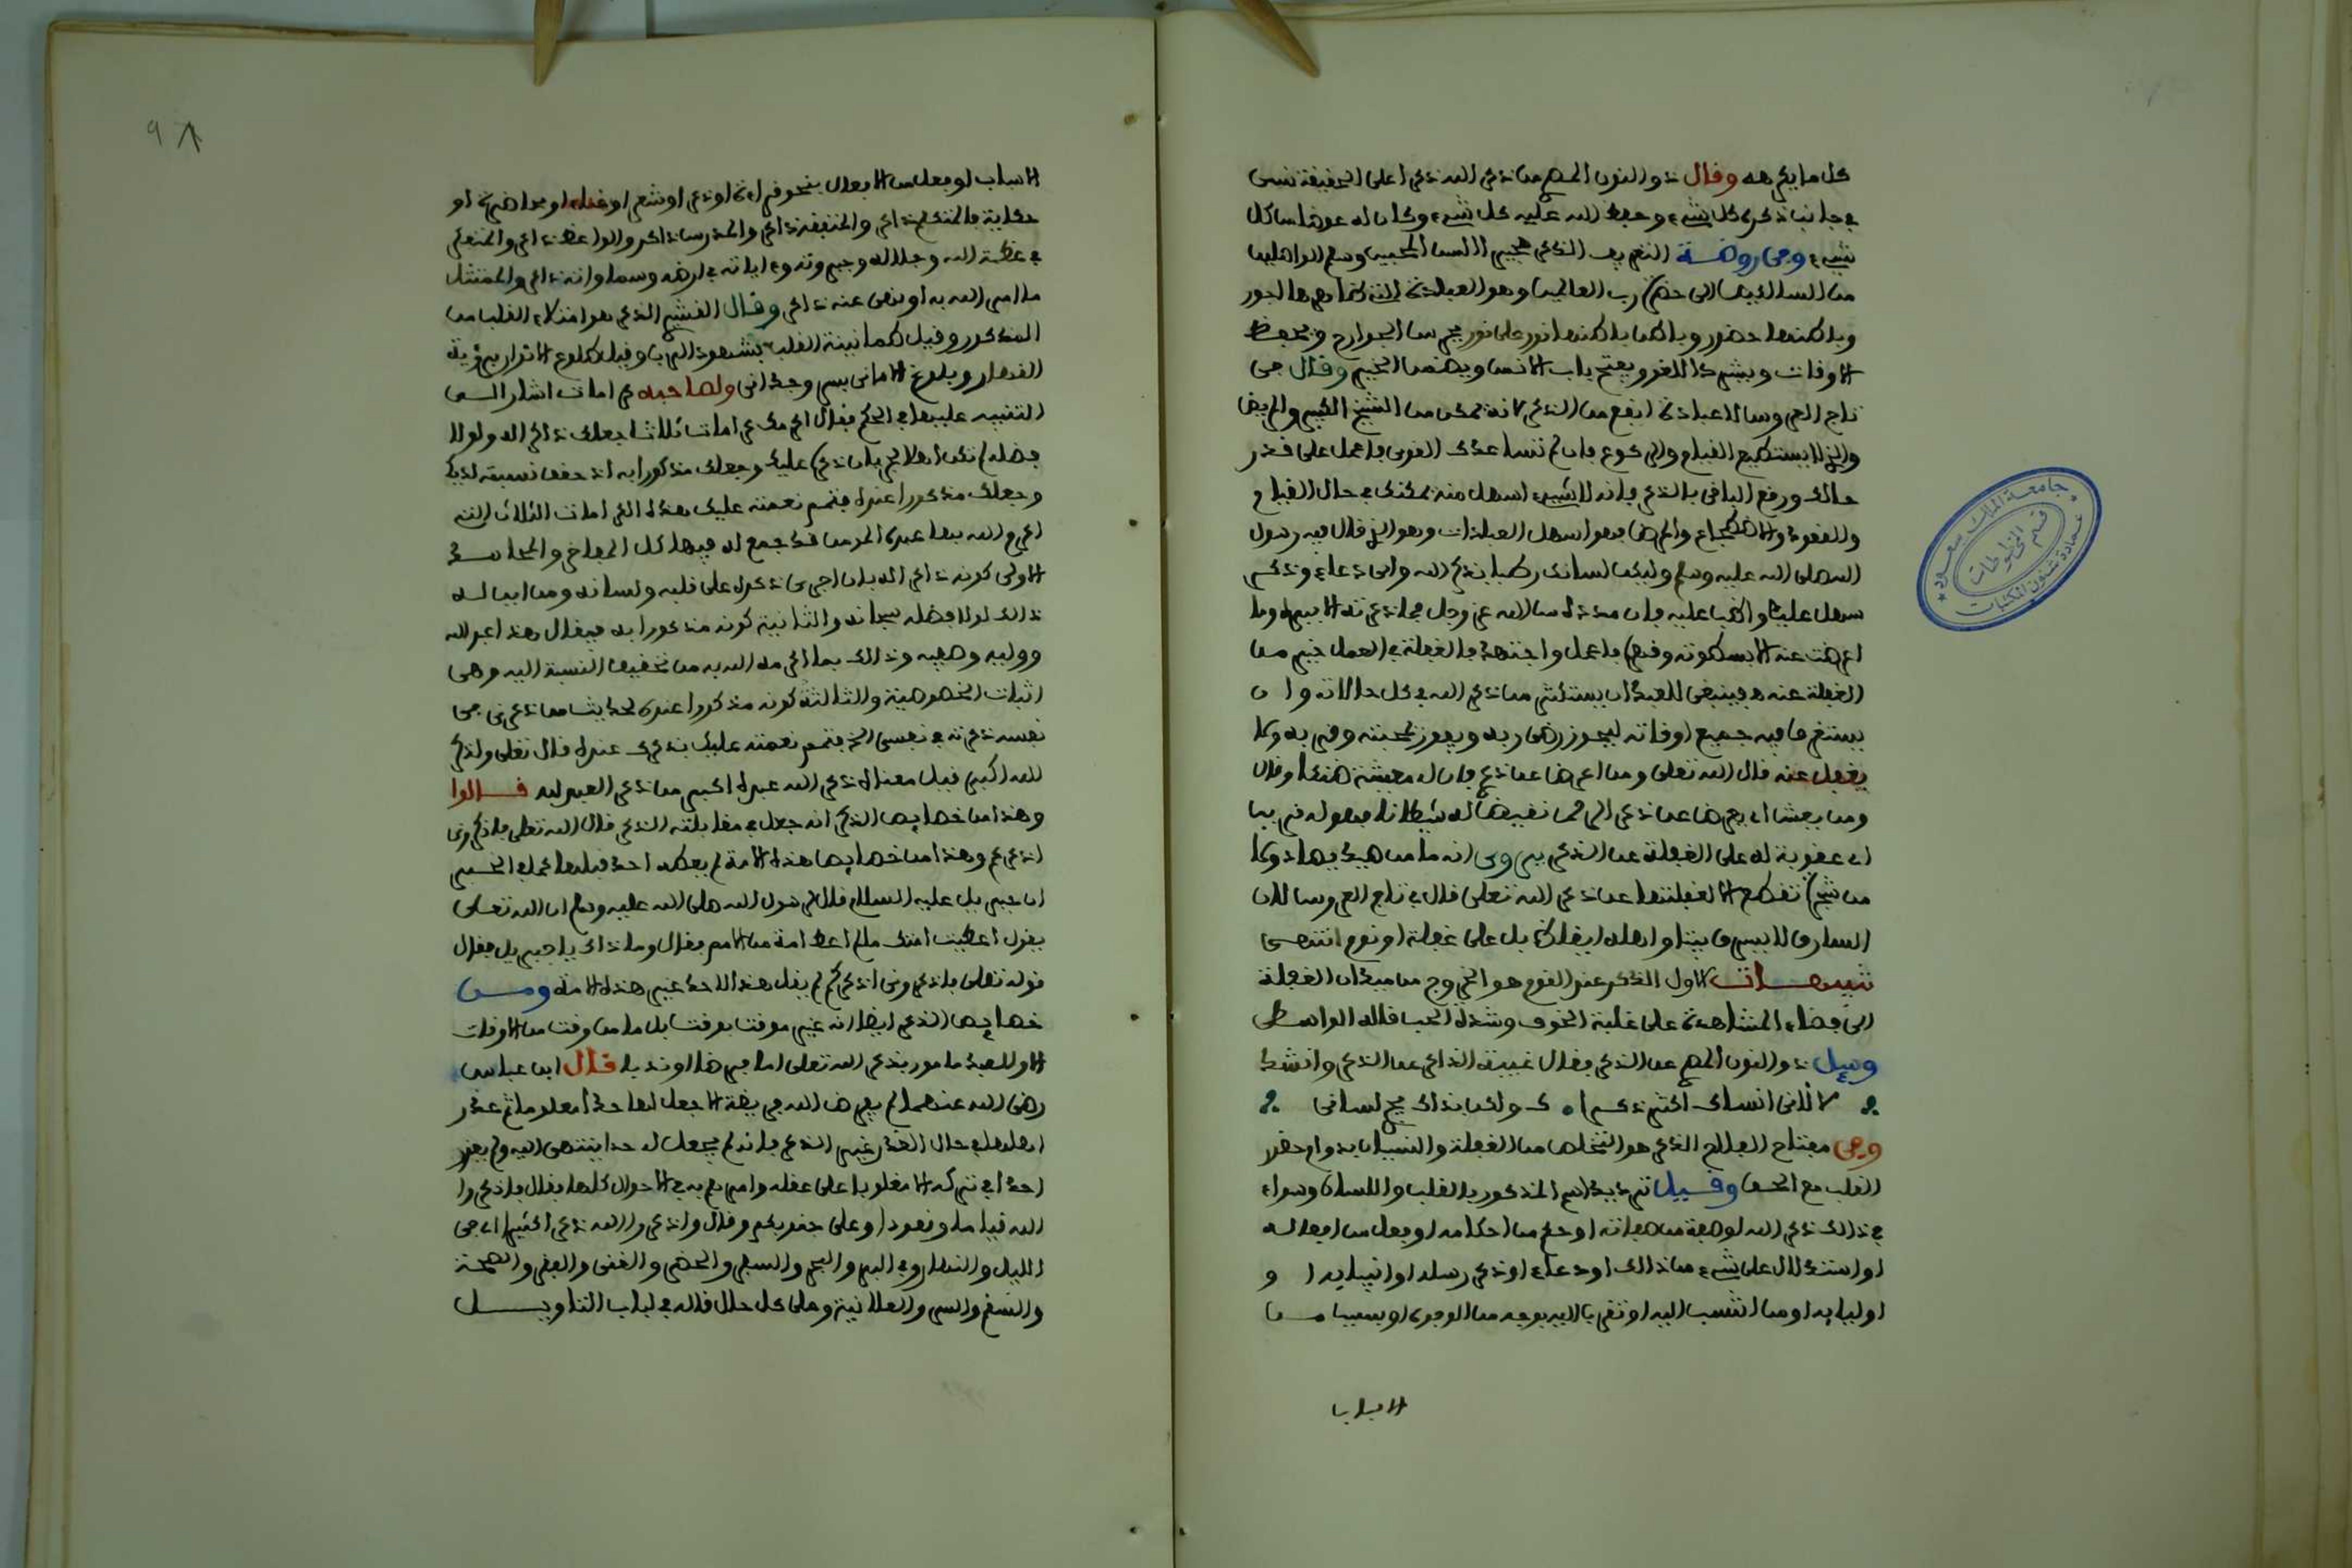 كل ما يكرهه وقال ذو النون المصري من ذكر الله ذكرا على الحقيقة نسي
في جانب ذكره كل شيء وحفظ الله عليه كل شيء وكان له عوضا من كل
شيء وفي روضة التعريف الذكر هجير السن المحبين وسلم الواصلين
من السالكين إلى حضرة رب العالمين وهو العبادة التي ظاهرها أجور
وباطنها حضور وباطن باطنها نور على نور يحرس الجوارح ويحفظ
الاوقات ويشرح الصدر ويفتح باب الانس ويهضم الخير وقال في
تاج العروس لا عبادة انفع من الذكر لانه يمكن من الشيخ الكبير والمريض
والذي لا يستطيع القيام والركوع فان لم تساعدك القوى فاعمل على قدر
حالك ورقع الباقي بالذكر فانه لا شيء اسهل منه يمكنك في حال القيام
والقعود والاضطجاع والمرض فهو اسهل العبادات وهو الذي قال فيه رسول
الله صلى الله عليه وسلم وليكن لسانك رطبا بذكر الله واي دعاء وذكر
سهل عليك واظب عليه فان مدده من الله عز وجل فما ذكرته الا ببره وما
اعرضت عنه الا بسطوته وقهره فاعمل واجتهد فالغفلة في العمل خير من
الغفلة عنه فينبغي للعبد ان يستكثر من ذكر الله في كل حالاته وان
يستغرق فيه جميع اوقاته ليحوز رضى ربه ويفوز بمحبته وقربه ولا
يغفل عنه قال الله تعلى ومن اعرض عن ذكري فان له معيشة ضنكا وقال
ومن يعش اي يعرض عن ذكر الرحمن نقيض له شيطانا فهو له قرين
اي عقوبة له على الغفلة عن الذكر يروى انه ما من صيد يصاد ولا
من شجرة تقطع الا لغفلتها عن ذكر الله تعلى قال في تاج العروس لان
السارق لا يسرق بيتا واهله ايقاظ بل على غفلة او نوم انتهى
تنبيهات الاول الذكر عند القوم هو الخروج من ميدان الغفلة
الى فضاء المشاهدة على غلبة الخوف وشدة الحب قاله الواسطي
وسيل ذو النون المصري عن الذكر فقال غيبة الذاكر عن الذكر وانشد
لا لاني انساك اكثر ذكراك ولكن بذاك يجري لساني
وفي مفتاح الفلاح الذكر هو التخلص من الغفلة والنسيان بدوام حضور
القلب مع الحق وقيل ترديد اسم المذكور بالقلب واللسان وسواء
في ذلك ذكر الله او صفة من صفاته او حكم من احكامه او فعل من افعاله
او استدلال على شيء من ذلك او دعاء او ذكر رسله او انبيايه او
اوليايه او من انتسب اليه او تقرب اليه بوجه من الوجوه او بسبب من
الاسباب
الاسباب او فعل من الافعال بنحو قراءة او ذكر او شعر او غناء او محاضرة او
حكاية فالمتكلم ذاكر والمتفقه ذاكر والمدرس ذاكر والواعظ ذاكر والمتفكر
في عظمة الله وجلاله وجبروته وءاياته في ارضه وسماواته ذاكر والممتثل
ما امر الله به او نهى عنه ذاكر وقال القشيري الذكر هو امتلاء القلب من
المذكور وقيل طمانينة القلب بشهود الرب وقيل طلوع الانوار
القهار وبلوغ الاماني ولصاحبه كرامات اشار الى
التنبيه عليها في الحكم فقال اكرمك كرامات ثلاثا جعلك ذاكرا له ولولا
فضله لم تكن اهلا لجريان ذكره عليك وجعلك مذكورا به اذ حقق نسبته لديك
وجعلك مذكورا عنده فتمم نعمته عليك هذه الكرامات الثلاث التي
اكرم الله بها عبده المومن قد جمع له فيها كل المفاخر والمحامد
الاولى كونه ذاكرا له بان اجرى ذكره على قلبه ولسانه ومن اين له
ذلك لولا فضله سبحانه والثانية كونه مذكورا به فيقال هذا عبد الله
ووليه وصفيه وذلك بما اكرمه الله به من تحقيق النسبة اليه وهي
اثبات الخصوصية والثالثة كونه مذكورا عنده لحديث من ذكرني في
نفسه ذكرته في نفسي الخ فتمم نعمته عليك بذكرك عنده قال تعلى ولذكر
الله اكبر قيل معناه ذكر الله عبده اكبر من ذكر العبد لله قالوا
وهذا من خصايص الذكر انه جعل في مقابلته الذكر قال الله تعلى فاذكروني
اذكركم وهذا من خصايص هذه الامة لم يعطه احد قبلها كما في الخبر
ان جبريل عليه السلام قال لرسول الله صلى الله عليه وسلم ان الله تعلى
يقول اعطيت امتك ما لم اعط امة من الامم فقال وما ذاك يا جبريل فقال
قوله تعلى فاذكروني اذكركم لم يقل هذا لاحد غير هذه الامة ومن
خصايص الذكر ايضا انه غير موقت بوقت بل ما من وقت من الاوقات
الا والعبد مامور بذكر الله تعلى اما فرضا او ندبا قال ابن عباس
رضي الله عنهما لم يفرض الله فريضة الا جعل لها حدا معلوما ثم عذر
اهلها في حال العذر غير الذكر فانه لم يجعل له حدا ينتهى اليه ولم يعذر
احدا في تركه الا مغلوبا على عقله وامرهم به في الاحوال كلها فقال فاذكروا
الله قياما وقعودا وعلى جنوبكم وقال واذكروا الله ذكرا كثيرا اي في
الليل والنهار وفي البر والبحر والسفر والحضر والغنى والفقر والصحة
والسقم والسر والعلانية وعلى كل حال قاله في لباب التاويل
جامعة الملك سعود
عمادة شئون المكتبات
قسم المخطوطات